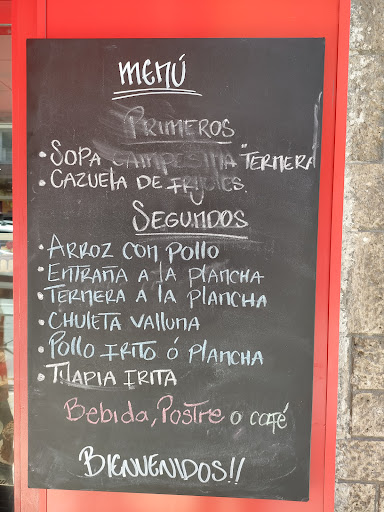 MENÚ
PRIMEROS
• SOPA CAMPESINA "TERNERA"
• CAZUELA DE FRIJOLES.
SEGUNDOS
• ARROZ CON POLLO
• ENTRAÑA A LA PLANCHA
• TERNERA A LA PLANCHA
• CHULETA VALLUNA
• POLLO FRITO Ó PLANCHA
• TILAPIA FRITA
Bebida, Postre o café
BIENVENIDOS!!